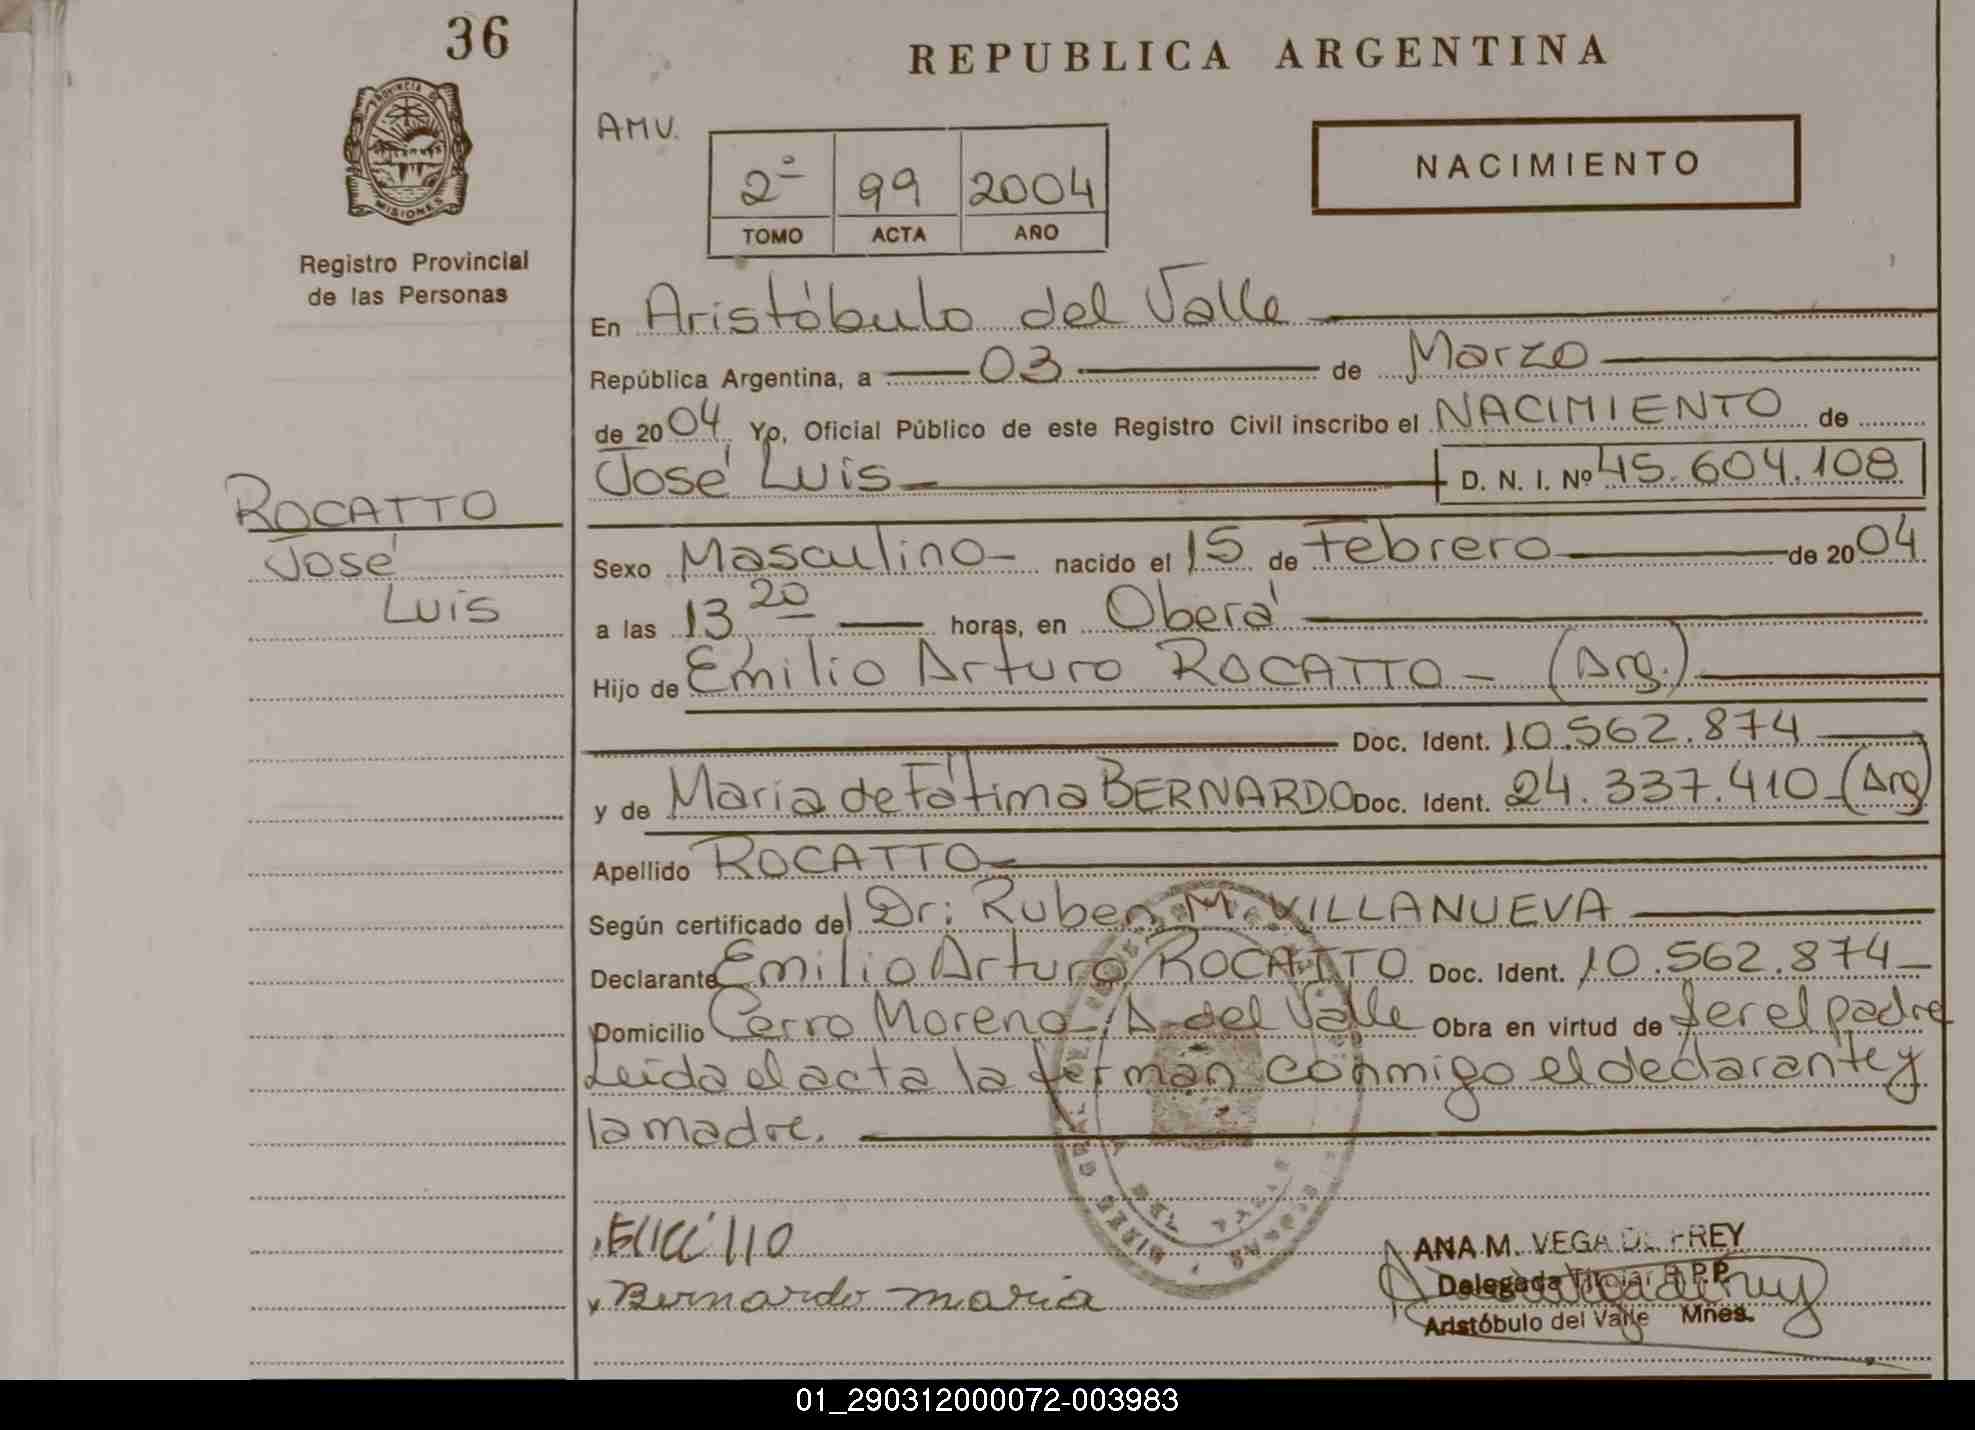 36
REPUBLICA ARGENTINA
PROVINCIA DE
MISIONES
Registro Provincial
de las Personas
AMV.
2º 99 2004
TOMO ACTA AÑO
NACIMIENTO
En Aristóbulo del Valle
República Argentina, a 03 de Marzo
de 2004 Yo, Oficial Público de este Registro Civil inscribo el NACIMIENTO de
José Luis D. N. I. Nº 45.604.108
ROCATTO
José
Luis
Sexo Masculino nacido el 15 de Febrero de 2004
a las 13 20 horas, en Oberá
Hijo de Emilio Arturo ROCATTO - (Arg.)
Doc. Ident. 10.562.874
y de María de Fátima BERNARDO Doc. Ident. 24.337.410 (Arg)
Apellido ROCATTO
Según certificado del Dr: Ruben M. VILLANUEVA
Declarante Emilio Arturo ROCATTO Doc. Ident. 10.562.874
Domicilio Cerro Moreno, A. del Valle Obra en virtud de ser el padre
Leida el acta la firman conmigo el declarante y
la madre.
Bernardo maria
ANA M. VEGA DE FREY
Delegada Titular R.P.P.
Aristóbulo del Valle Mnes.
01_290312000072-003983